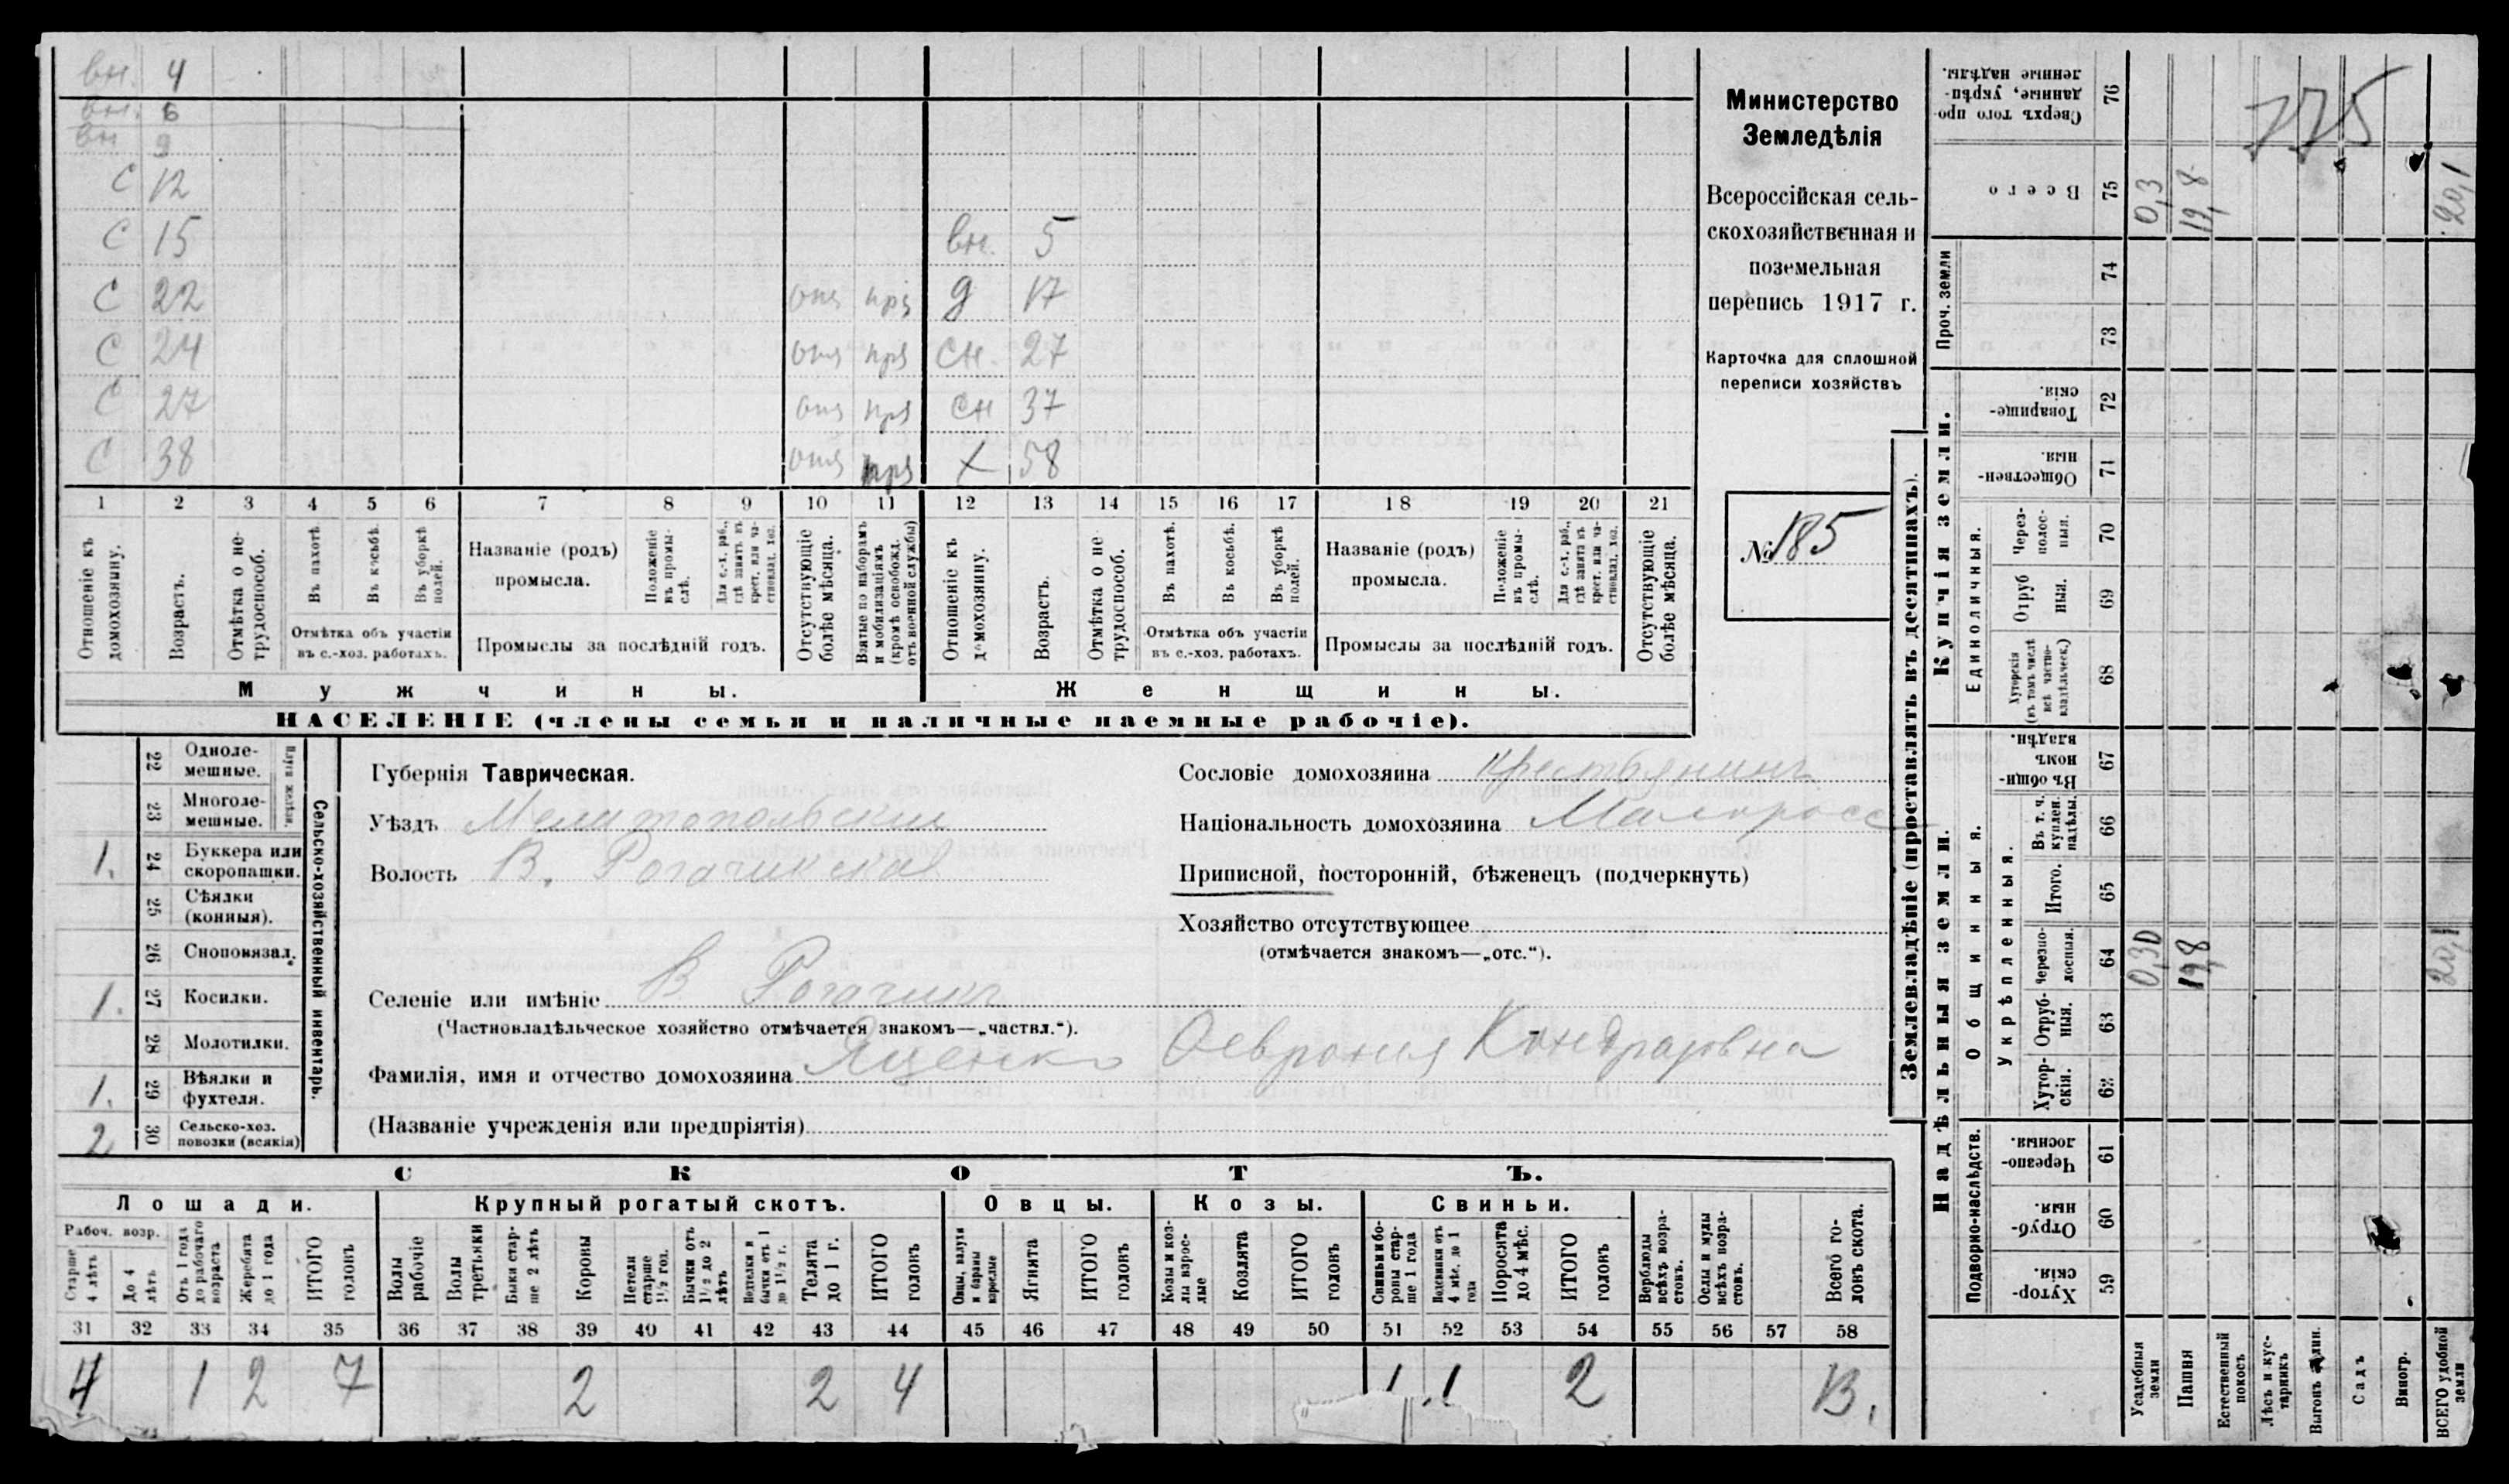 вн. 4
вн. 6
вн 9
С 12
С 15 вн. 5
С 22 отс прз д 17
С 24 отс прз сн. 27
С 27 отс прз сн 37
С 38 отс прз х 58
1 2 3 4 5 6 7 8 9 10 11 12 13 14 15 16 17 18 19 20 21
Отношеніе къ домохозяину.
Возрастъ.
Отмѣтка о нетрудоспособ.
Въ пахотѣ
Въ косьбѣ.
Въ уборкѣ полей.
Отмѣтка объ участіи въ с.-хоз. работахъ.
Названіе (родъ) промысла.
Положеніе въ промыслѣ.
Для с.-х. раб., гдѣ занятъ въ крест. или частновлад. хоз.
Промыслы за послѣдній годъ.
Отсутствующіе болѣе мѣсяца.
Взятые по наборамъ и мобилизаціямъ (кромѣ освобожд. отъ военной службы)
Отношеніе къ домохозяину.
Возрастъ.
Отмѣтка о нетрудоспособ.
Въ пахотѣ.
Въ косьбѣ.
Въ уборкѣ полей.
Отмѣтка объ участіи въ с.-хоз. работахъ.
Названіе (родъ) промысла.
Положеніе въ промыслѣ.
Для с.-х. раб., гдѣ занята въ крест. или частновлад. хоз.
Промыслы за послѣдній годъ.
Отсутствующіе болѣе мѣсяца.
Мужчины.
Женщины.
НАСЕЛЕНІЕ (члены семьи и наличные наемные рабочіе).
Министерство
Земледѣлія
Всероссійская сель-
скохозяйственная и
поземельная
перепись 1917 г.
Карточка для сплошной
переписи хозяйствъ
№ 185
22 Одноле-мешные.
23 Многоле-мешные.
Плуги желѣзн.
1. 24 Буккера или скоропашки.
25 Сѣялки (конныя).
26 Сноповязал.
1. 27 Косилки.
28 Молотилки.
1. 29 Вѣялки и фухтеля.
2 30 Сельско-хоз. повозки (всякія)
Сельско-хозяйственный инвентарь.
Губернія Таврическая.
Уѣздъ Мелитопольскій
Волость В. Рогачикская
Селеніе или имѣніе В Рогачикъ
(Частновладѣльческое хозяйство отмѣчается знакомъ—„частвл.“).
Фамилія, имя и отчество домохозяина Яценко Феврония Кондратовна
(Названіе учрежденія или предпріятія)
Сословіе домохозяина Крестьянинъ
Національность домохозяина Малоросс
Приписной, посторонній, бѣженецъ (подчеркнуть)
Хозяйство отсутствующее
(отмѣчается знакомъ—„отс.“).
СКОТЪ.
Лошади.
Крупный рогатый скотъ.
Овцы.
Козы.
Свиньи.
Рабоч. возр.
Старше 4 лѣтъ
До 4 лѣтъ
Отъ 1 года до рабочаго возраста
Жеребята до 1 года
ИТОГО головъ
Волы рабочіе
Волы третьяки
Быки старше 2 лѣтъ
Коровы
Нетели старше 1½ год.
Бычки отъ 1½ до 2 лѣтъ
Нетельки и бычки отъ 1 до 1½ г.
Телята до 1 г.
ИТОГО головъ
Овцы, валухи и бараны взрослые
Ягнята
ИТОГО головъ
Козы и козлы взрослые
Козлята
ИТОГО головъ
Свиньи и боровы старше 1 года
Подсвинки отъ 4 мѣс. до 1 года
Поросята до 4 мѣс.
ИТОГО головъ
Верблюды всѣхъ возрастовъ.
Ослы и мулы всѣхъ возрастовъ.
Всего головъ скота.
31 32 33 34 35 36 37 38 39 40 41 42 43 44 45 46 47 48 49 50 51 52 53 54 55 56 57 58
4 1 2 7 2 2 4 1 1 2 13.
Землевладѣніе (проставлять въ десятинахъ).
Купчія земли.
Надѣльныя земли.
Сверхъ того проданные, укрѣпленные надѣлы. 76
775
Всего 75 0,3 19,8 20,1
Проч. земли 74
73
Товарищескія. 72
Общественныя. 71
Единоличныя.
Черезполосныя. 70
Отрубныя. 69
Хуторскія (въ томъ числѣ всѣ частновладѣльческ.) 68
Общинныя.
Въ общинномъ владѣн. 67
Укрѣпленныя.
Въ т. ч. куплен. надѣлы. 66
Итого. 65
Черезполосныя. 64 0,30 19,8 20,1
Отрубныя. 63
Хуторскія. 62
Подворно-наслѣдств.
Черезполосныя. 61
Отрубныя. 60
Хуторскія. 59
Усадебныя земли
Пашня
Естественный покосъ
Лѣсъ и кустарникъ
Выгонъ
Садъ
Виногр.
ВСЕГО удобной земли